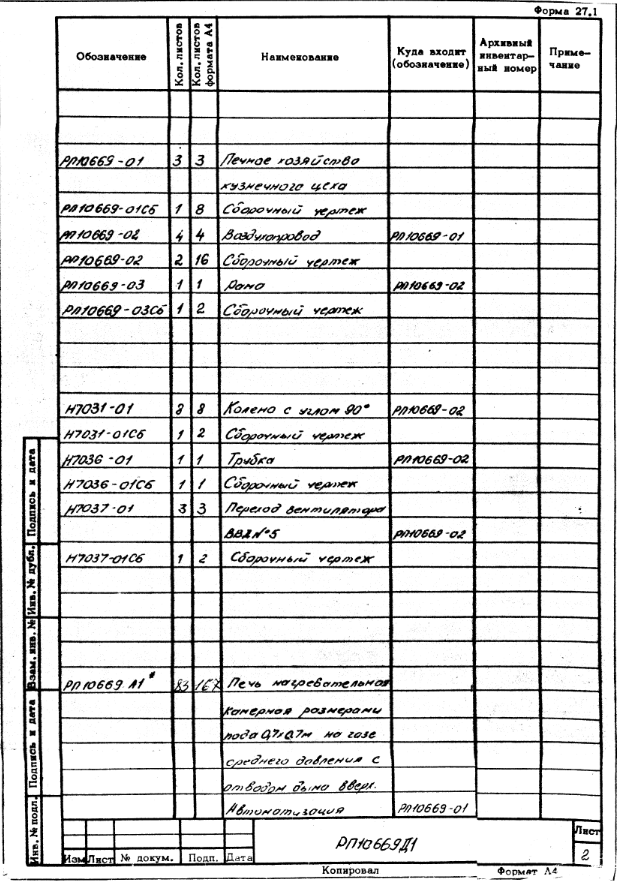 Форма 27.1
Обозначение Кол. листов Кол. листов формата А4 Наименование Куда входит (обозначение) Архивный инвентарный номер Примечание
РП10669-01 3 3 Печное хозяйство
кузнечного цеха
РП10669-01Сб 1 8 Сборочный чертеж
РП10669-02 4 4 Воздухопровод РП10669-01
РП10669-02 2 16 Сборочный чертеж
РП10669-03 1 1 Рама РП10669-02
РП10669-03Сб 1 2 Сборочный чертеж
Н7031-01 8 8 Колено с углом 90° РП10669-02
Н7031-01Сб 1 2 Сборочный чертеж
Н7036-01 1 1 Трубка РП10669-02
Н7036-01Сб 1 1 Сборочный чертеж
Н7037-01 3 3 Переход вентилятора
ВВД №5 РП10669-02
Н7037-01Сб 1 2 Сборочный чертеж
РП10669 А1* 83 167 Печь нагревательная
камерная размерами
пода 0,7х0,7м на газе
среднего давления с
отводом дыма вверх.
Автоматизация РП10669-01
Инв. № подл. Подпись и дата Взам. инв. № Инв. № дубл. Подпись и дата
РП10669Д1
Лист
2
Изм Лист № докум. Подп. Дата
Копировал Формат А4